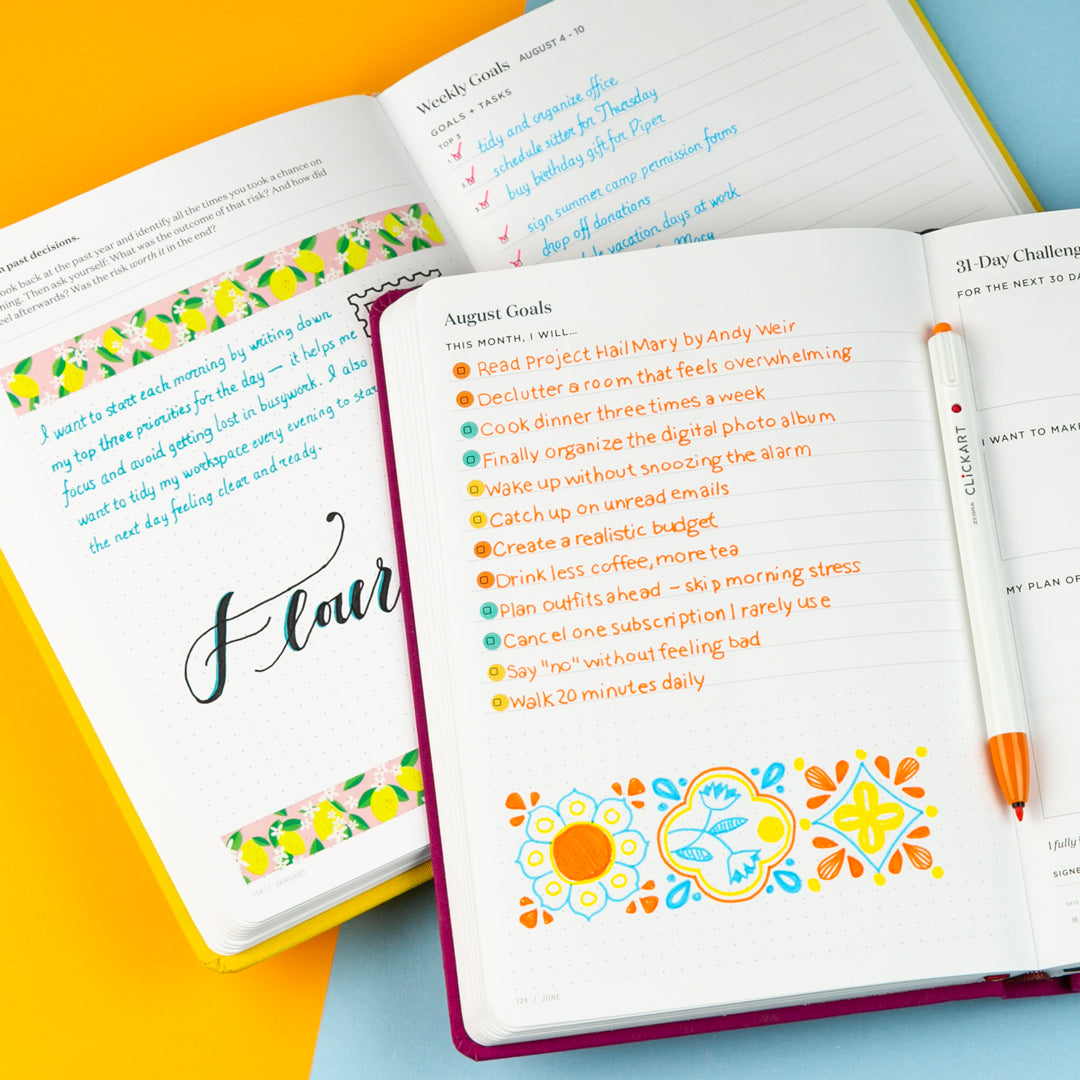 past decisions.
back at the past year and identify all the times you took a chance on
Then ask yourself: What was the outcome of that risk? And how did
afterwards? Was the risk worth it in the end?
I want to start each morning by writing down
my top three priorities for the day — it helps me
focus and avoid getting lost in busywork. I also
want to tidy my workspace every evening to star
the next day feeling clear and ready.
Flour
134 / JANUARY
Weekly Goals AUGUST 4 - 10
GOALS + TASKS
TOP 3
1. tidy and organize office
2. schedule sitter for Thursday
3. buy birthday gift for Piper
sign summer camp permission forms
drop off donations
vacation days at work
Macy
August Goals
THIS MONTH, I WILL...
Read Project Hail Mary by Andy Weir
Declutter a room that feels overwhelming
Cook dinner three times a week
Finally organize the digital photo album
Wake up without snoozing the alarm
Catch up on unread emails
Create a realistic budget
Drink less coffee, more tea
Plan outfits ahead – skip morning stress
Cancel one subscription I rarely use
Say "no" without feeling bad
Walk 20 minutes daily
324 / JUNE
ZEBRA CLiCKART
31-Day Challeng
FOR THE NEXT 30 DA
I WANT TO MAKE
MY PLAN OF
I fully
SIGNE